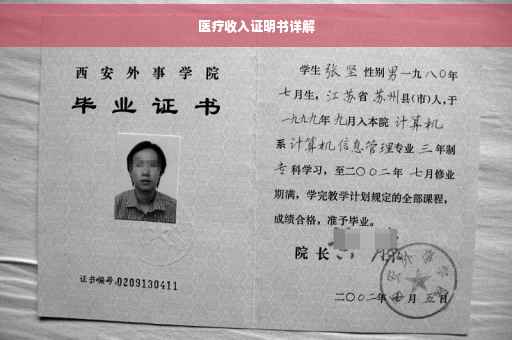 医疗收入证明书详解
西安外事学院
毕业证书
证书编号:0209130411
学生张坚性别男一九八〇年
七月生,江苏省苏州县(市)人,于
一九九九年九月入本院计算机
系计算机信息管理专业三年制
专科学习,至二〇〇二年七月修业
期满,学完教学计划规定的全部课程,
成绩合格,准予毕业。
院长
二〇〇二年 月五日